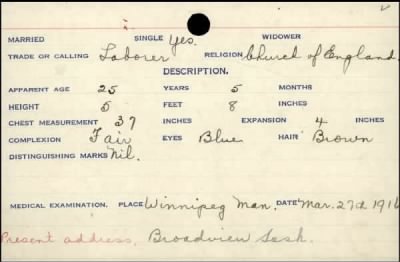 MARRIED SINGLE Yes. WIDOWER
TRADE OR CALLING Laborer RELIGION Church of England.
DESCRIPTION.
APPARENT AGE 25 YEARS 5 MONTHS
HEIGHT 5 FEET 8 INCHES
CHEST MEASUREMENT 37 INCHES EXPANSION 4 INCHES
COMPLEXION Fair EYES Blue HAIR Brown
DISTINGUISHING MARKS Nil.
MEDICAL EXAMINATION. PLACE Winnipeg Man. DATE Mar. 27th 1916
Present address, Broadview Sask.